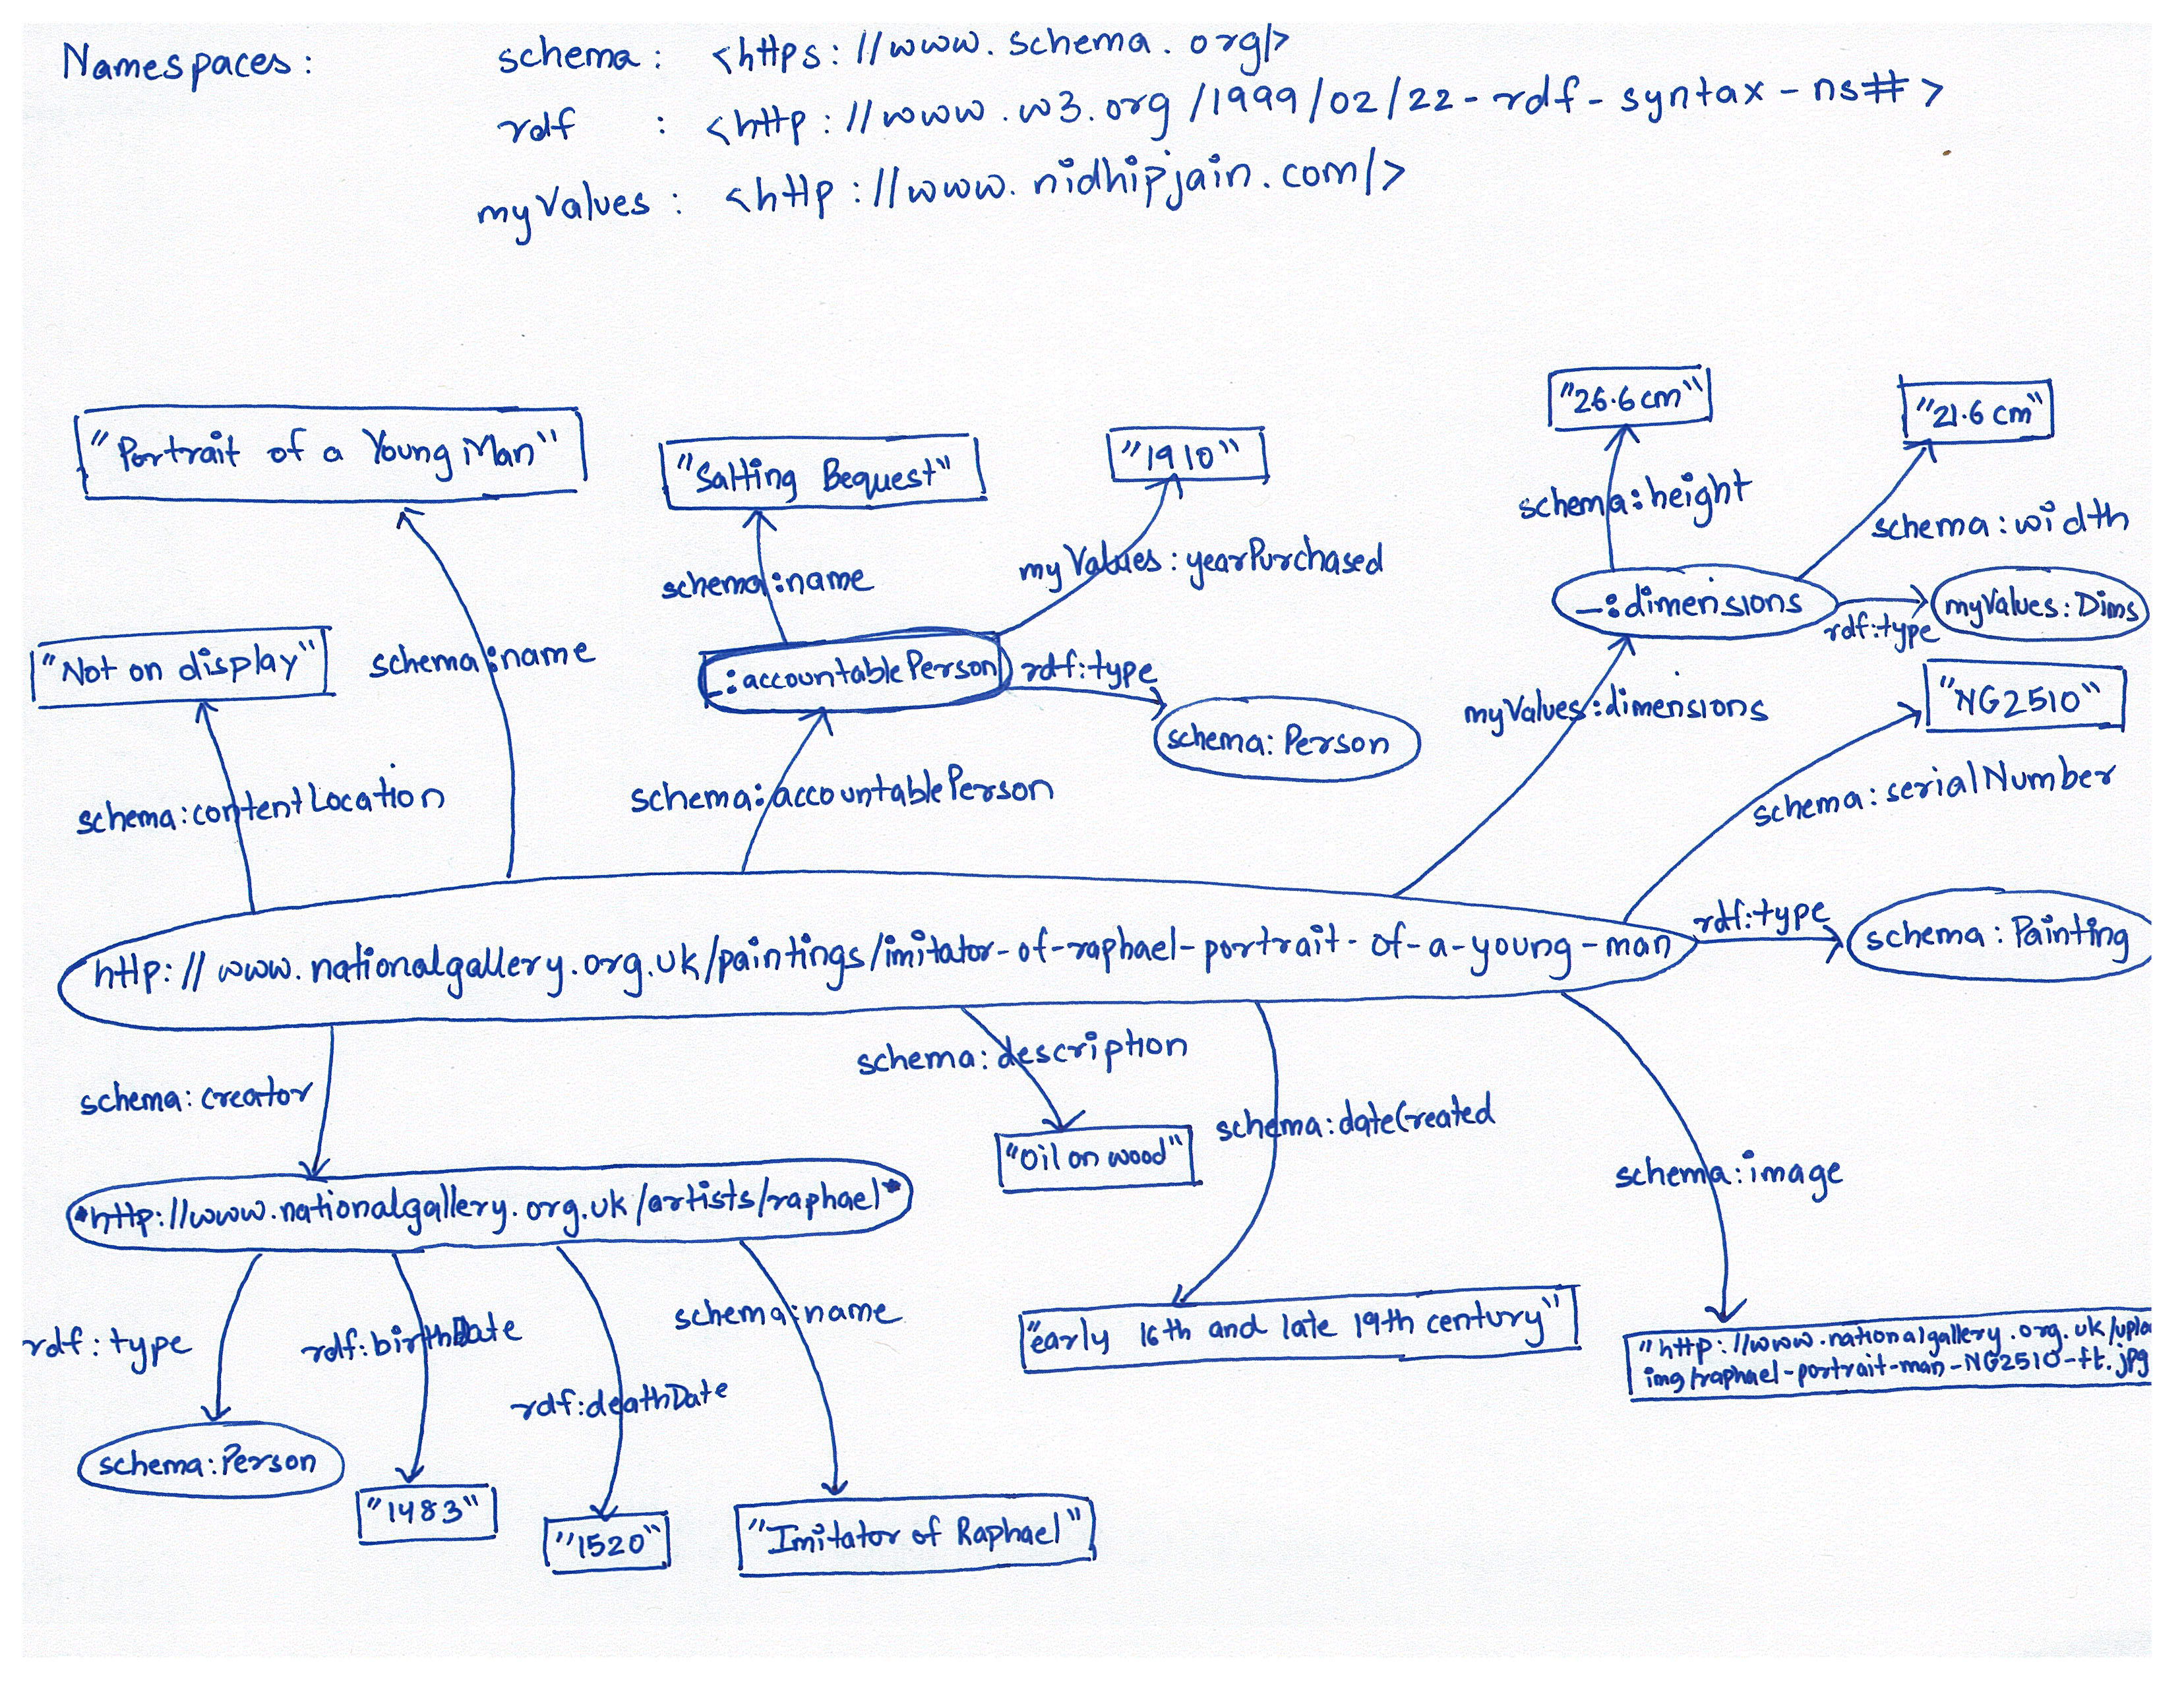 Namespaces: schema: <https://www.schema.org/>
rdf : <http://www.w3.org/1999/02/22-rdf-syntax-ns#>
myValues: <http://www.nidhipjain.com/>
"26.6cm"
"21.6 cm"
"Portrait of a Young Man"
"Salting Bequest"
"1910"
schema:height
schema:width
schema:name
myValues:yearPurchased
_:dimensions
rdf:type
myValues:Dims
"Not on display"
schema:name
_:accountablePerson
rdf:type
schema:Person
myValues:dimensions
"NG2510"
schema:contentLocation
schema:accountablePerson
schema:serialNumber
http://www.nationalgallery.org.uk/paintings/imitator-of-raphael-portrait-of-a-young-man
rdf:type
schema:Painting
schema:creator
schema:description
"Oil on wood"
schema:dateCreated
schema:image
http://www.nationalgallery.org.uk/artists/raphael
rdf:type
rdf:birthDate
rdf:deathDate
schema:name
"early 16th and late 19th century"
"http://www.nationalgallery.org.uk/uplo
img/raphael-portrait-man-NG2510-ft.jpg
schema:Person
"1483"
"1520"
"Imitator of Raphael"